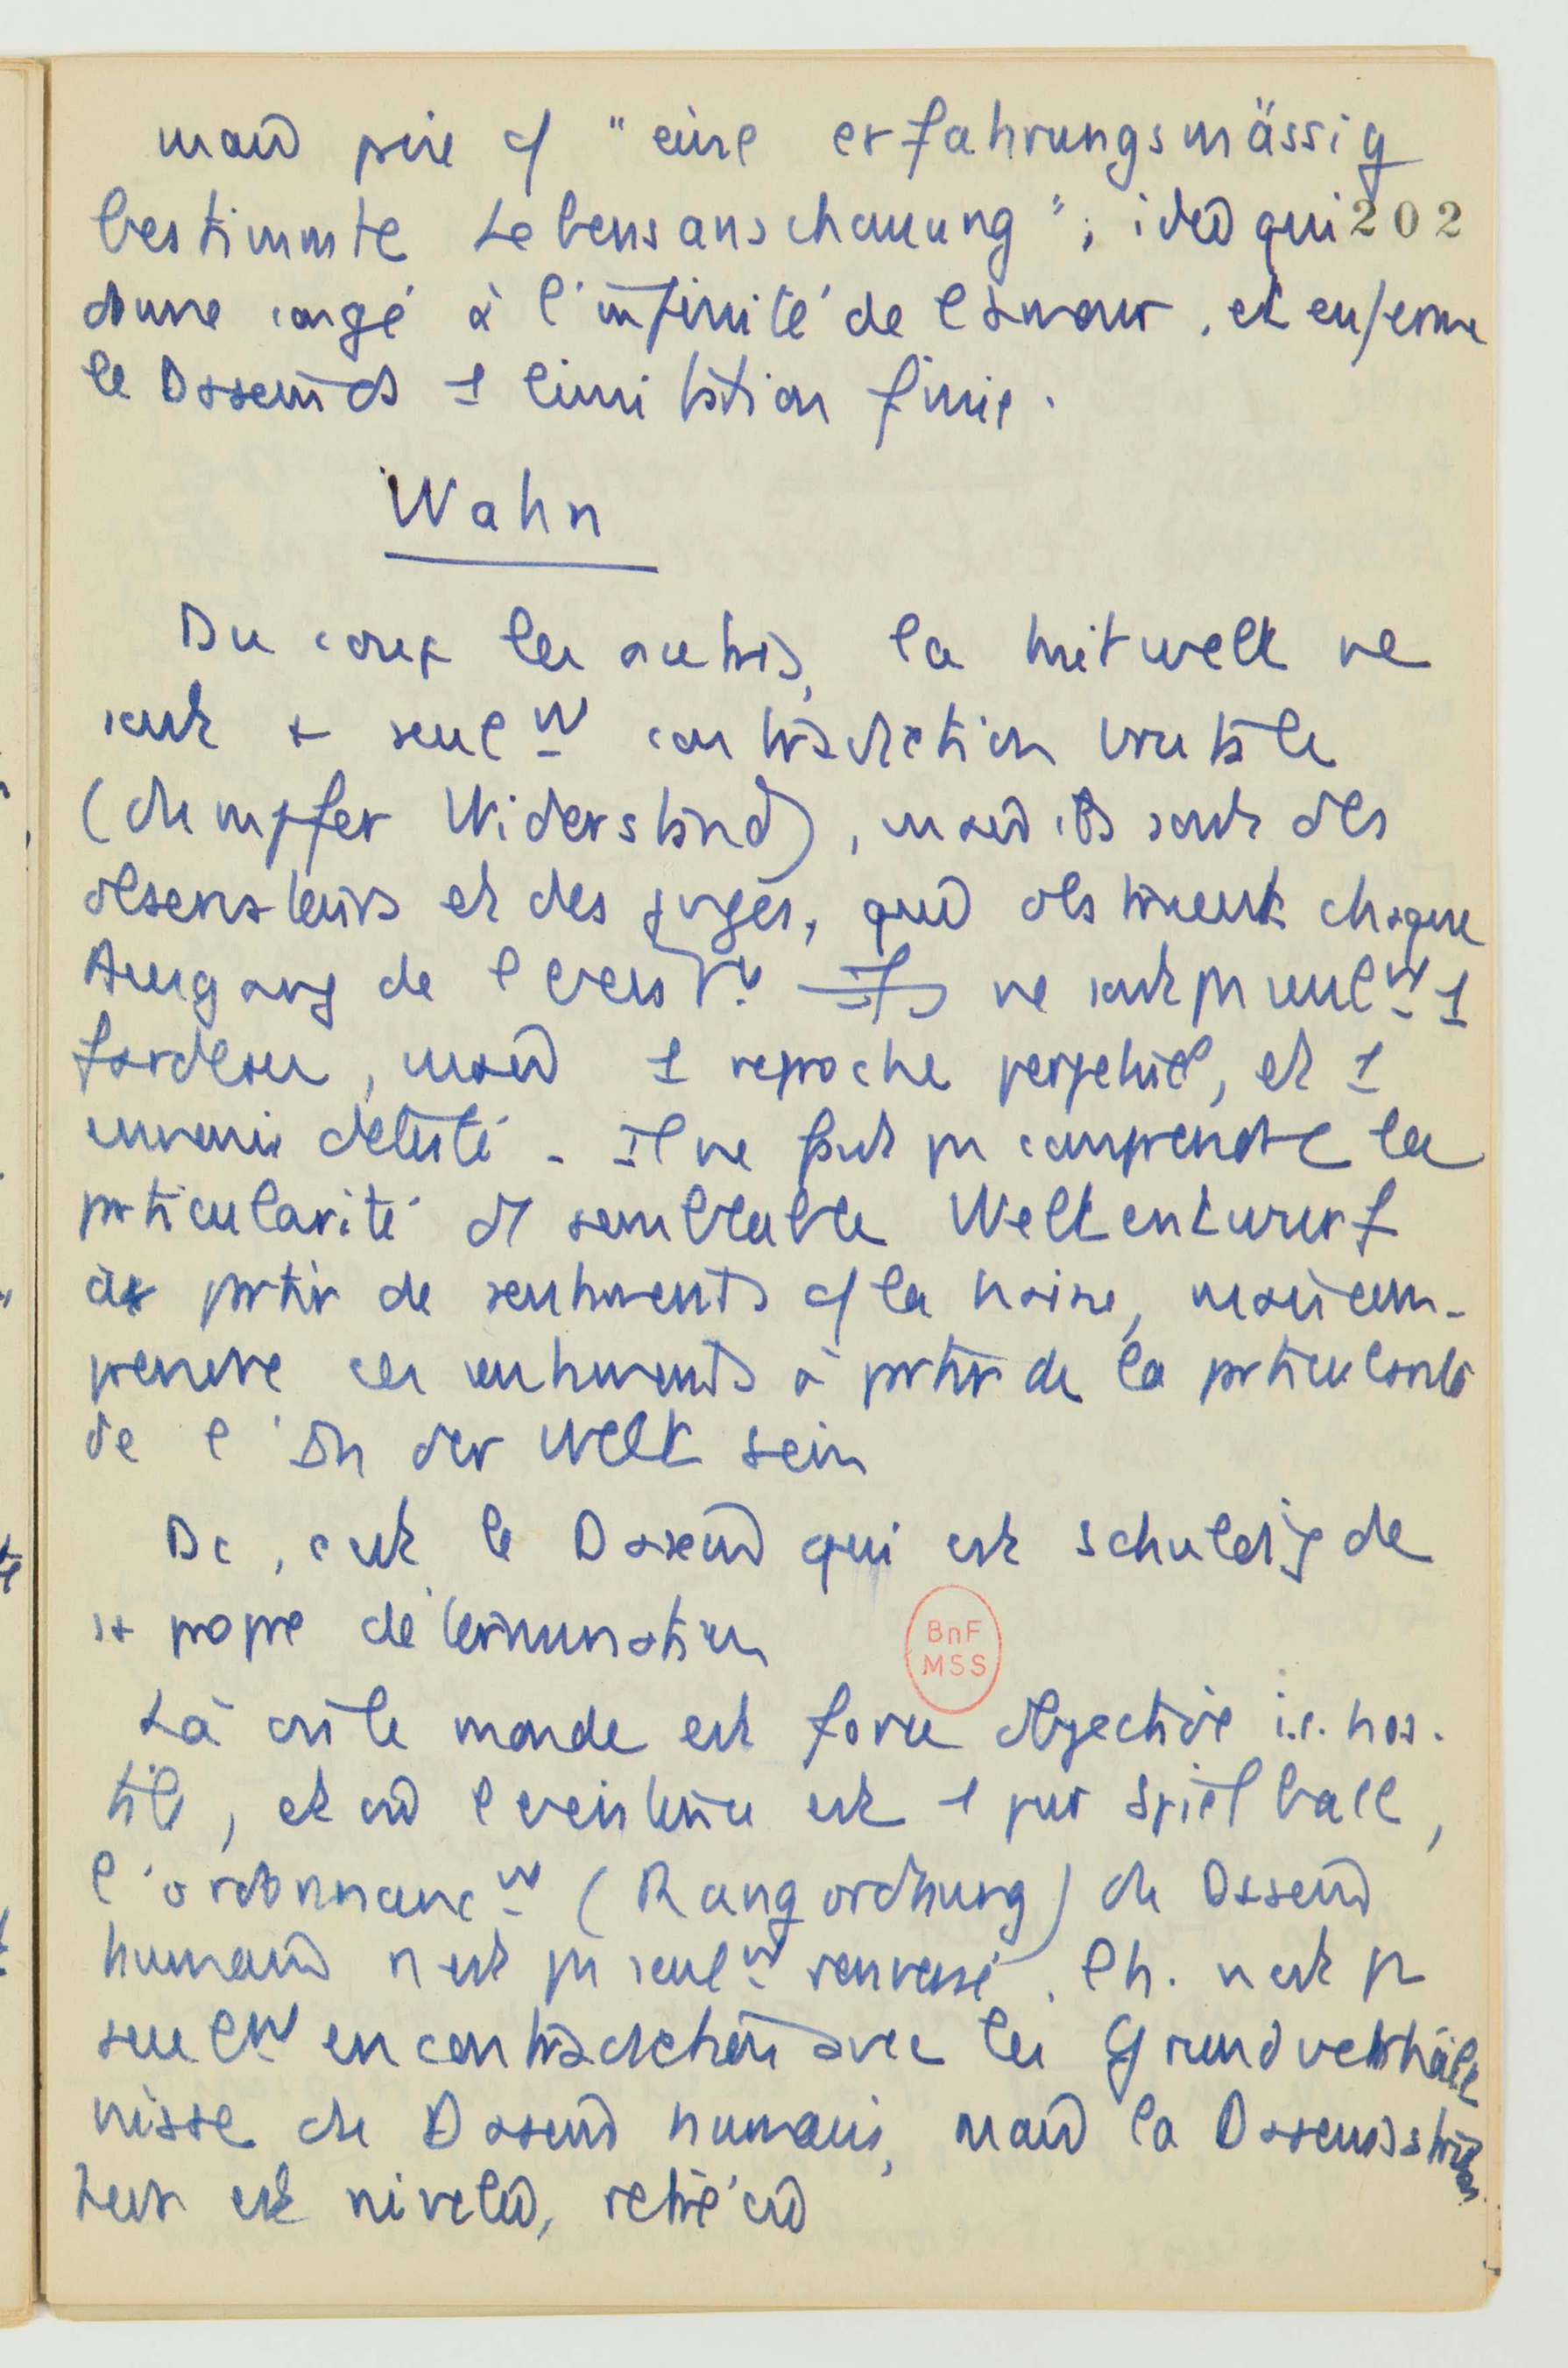 mais pire cf "eine erfahrungsmässig
bestimmte Lebensanschauung"; idée qui 202
donne congé à l'infinité de l'amour, et enferme
le Dasein ds 1 limitation finie.
Wahn
Du coup les autres, la Mitwelt ne
sont + seulmt contradiction brutale
(dumpfer Widerstand), mais ils sont des
observateurs et des juges, qui obstruent chaque
Ausgang de l' Ils ne sont pas seulmt 1
fardeau, mais 1 reproche perpétuel, et 1
ennemi détesté - Il ne faut pas comprendre la
pticularité de semblable Weltentwurf
à ptir de sentiments cf la haine, mais com-
prendre ces sentiments à ptir de la pticularité
de l'In der Welt sein
Dc, c'est le Dasein qui est schuldig de
sa propre détermination
Là où le monde est force objective i.e. hos-
tile, et où l'existence est 1 pur Spielball,
l'ordonnancmt (Rangordnung) du Dasein
humain n'est pas seulmt renversé. l'h. n'est pas
seulmt en contradiction avec les Grundverhält
nisse du Dasein humain, mais la Daseinsstruk
tur est nivelée, rétrécie
BnF
MSS